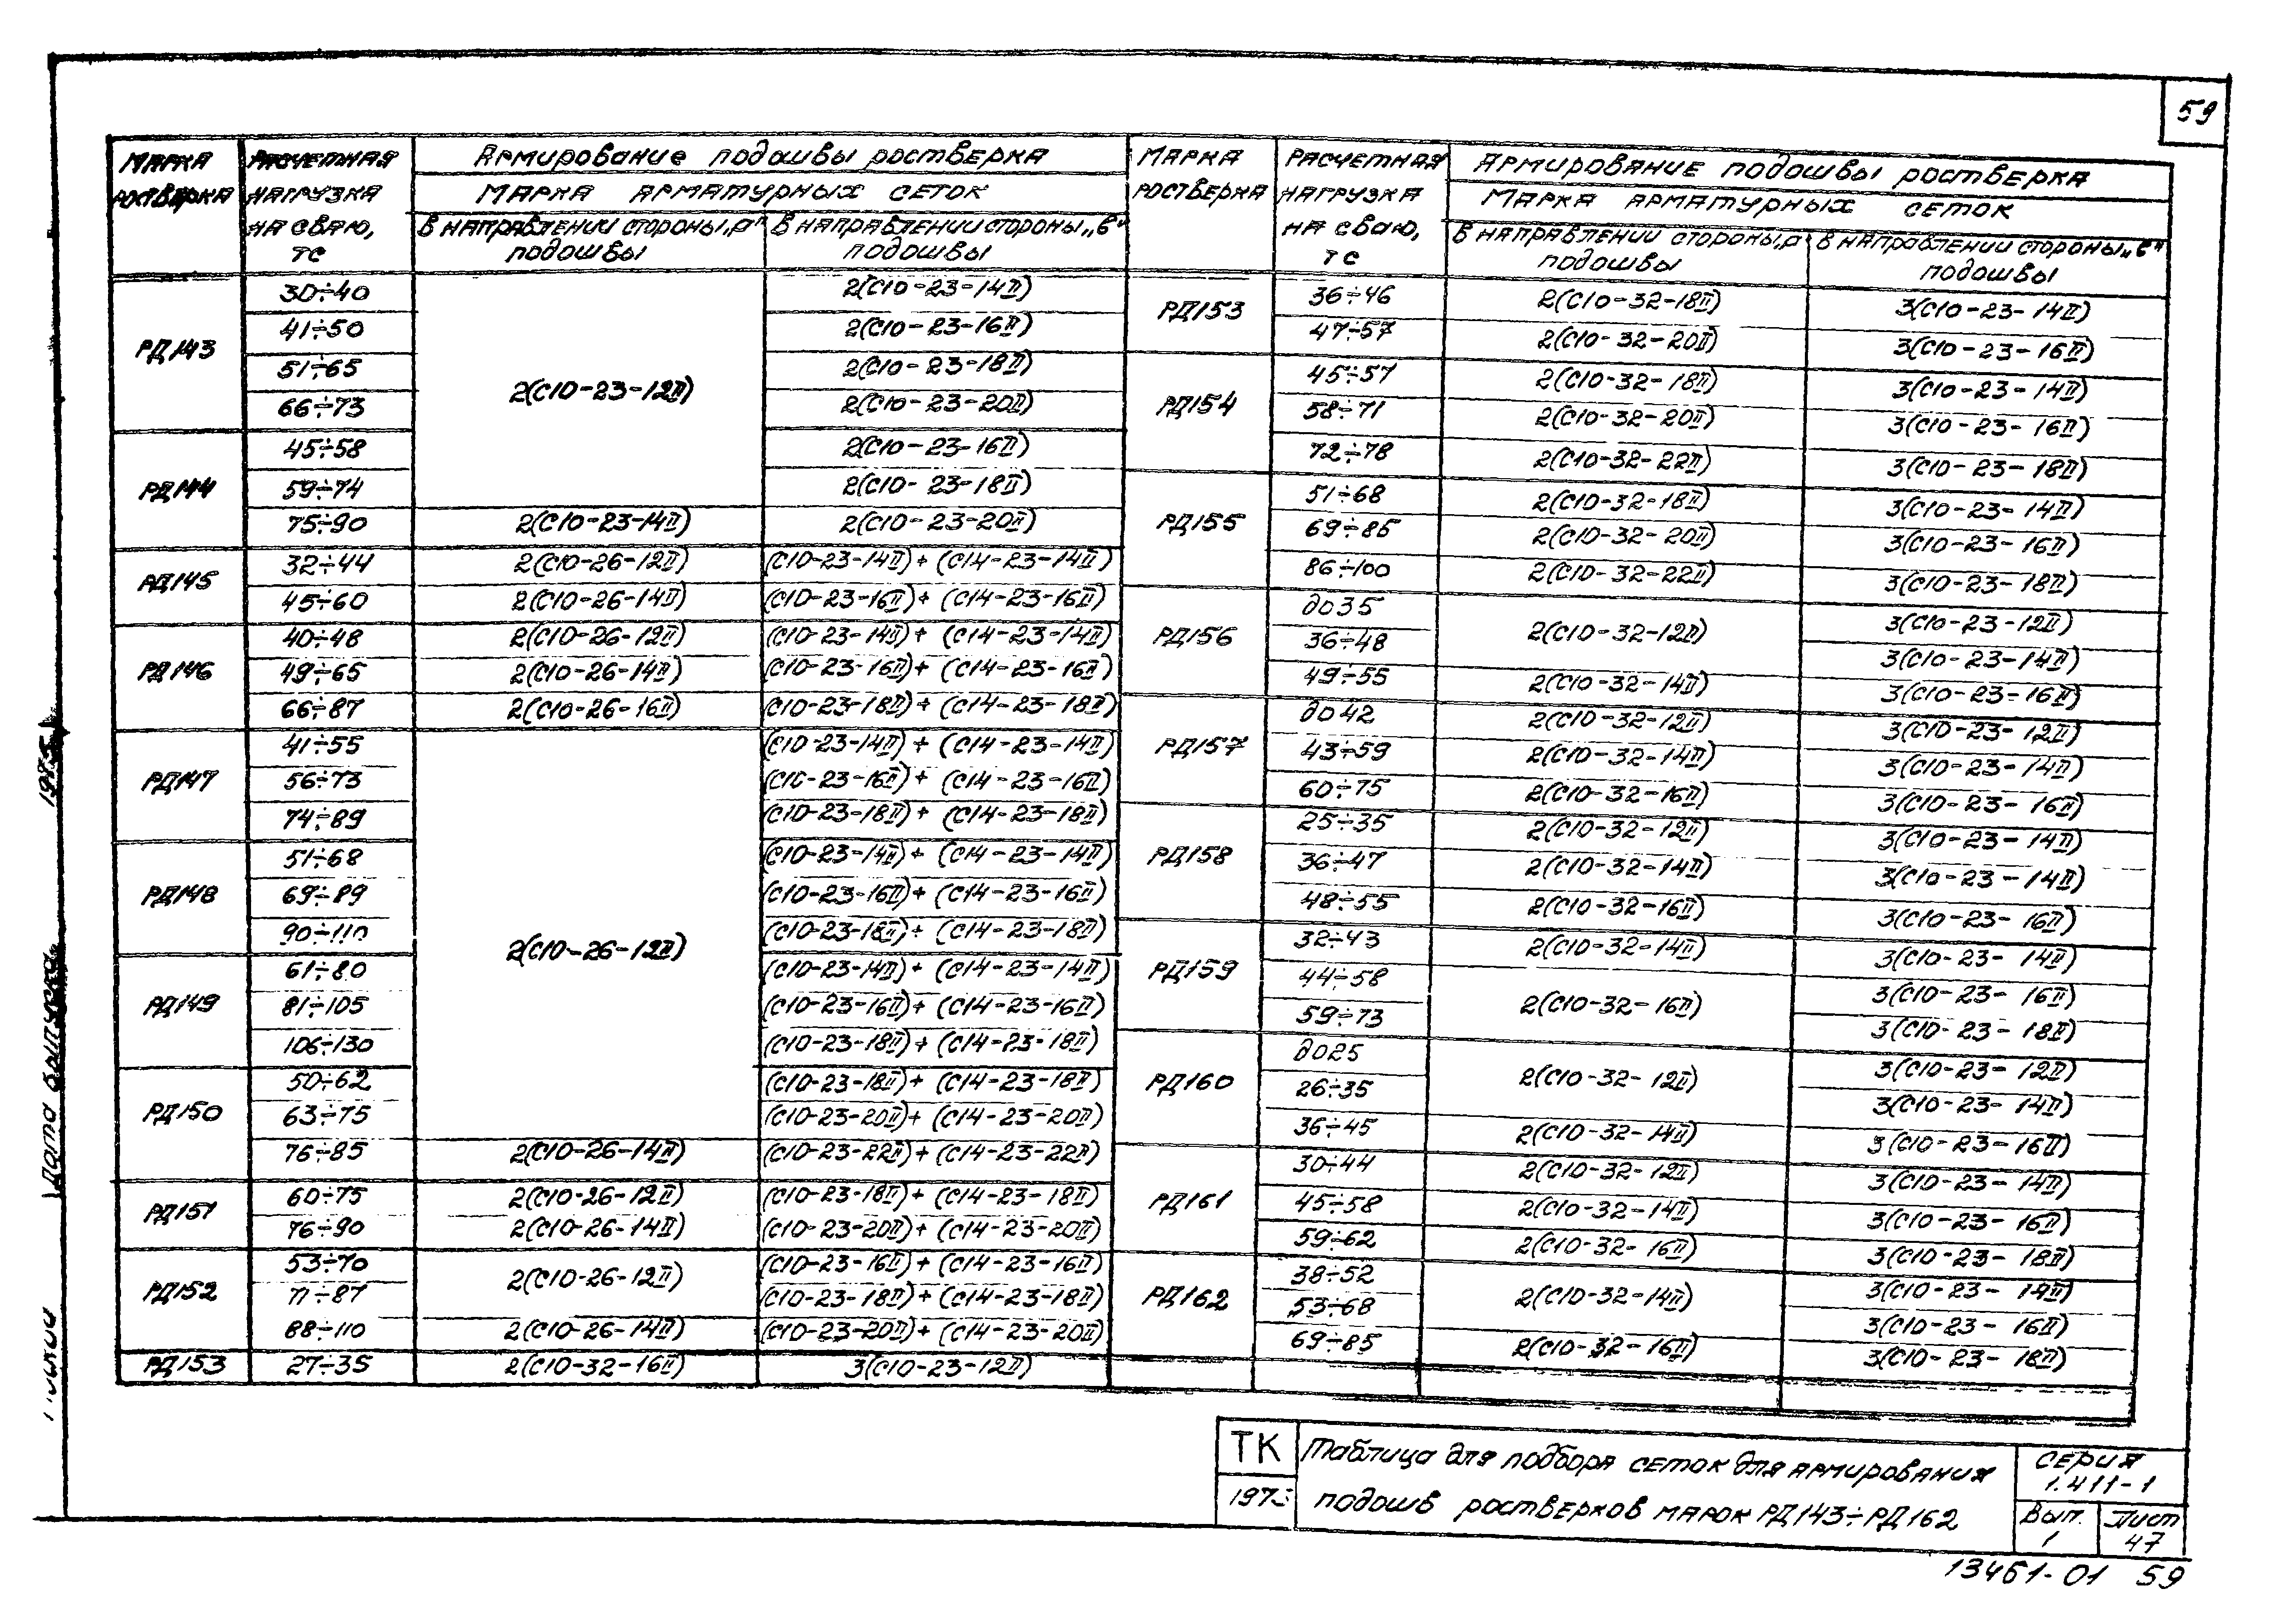 59
МАРКА РОСТВЕРКА | РАСЧЕТНАЯ НАГРУЗКА НА СВАЮ, ТС | Армирование подошвы ростверка | МАРКА РОСТВЕРКА | РАСЧЕТНАЯ НАГРУЗКА НА СВАЮ, ТС | Армирование подошвы ростверка
МАРКА АРМАТУРНЫХ СЕТОК | МАРКА АРМАТУРНЫХ СЕТОК
В НАПРАВЛЕНИИ СТОРОНЫ „а" подошвы | В НАПРАВЛЕНИИ СТОРОНЫ „в" подошвы | В НАПРАВЛЕНИИ СТОРОНЫ „а" подошвы | В НАПРАВЛЕНИИ СТОРОНЫ „в" подошвы
РД143 | 30÷40 | 2(С10-23-12II) | 2(С10-23-14II)
41÷50 | 2(С10-23-16II)
51÷65 | 2(С10-23-18II)
66÷73 | 2(С10-23-20II)
РД144 | 45÷58 | 2(С10-23-16II)
59÷74 | 2(С10-23-18II)
75÷90 | 2(С10-23-14II) | 2(С10-23-20II)
РД145 | 32÷44 | 2(С10-26-12II) | (С10-23-14II)+(С14-23-14II)
45÷60 | 2(С10-26-14II) | (С10-23-16II)+(С14-23-16II)
РД146 | 40÷48 | 2(С10-26-12II) | (С10-23-14II)+(С14-23-14II)
49÷65 | 2(С10-26-14II) | (С10-23-16II)+(С14-23-16II)
66÷87 | 2(С10-26-16II) | (С10-23-18II)+(С14-23-18II)
РД147 | 41÷55 | 2(С10-26-12II) | (С10-23-14II)+(С14-23-14II)
56÷73 | (С10-23-16II)+(С14-23-16II)
74÷89 | (С10-23-18II)+(С14-23-18II)
РД148 | 51÷68 | (С10-23-14II)+(С14-23-14II)
69÷89 | (С10-23-16II)+(С14-23-16II)
90÷110 | (С10-23-18II)+(С14-23-18II)
РД149 | 61÷80 | (С10-23-14II)+(С14-23-14II)
81÷105 | (С10-23-16II)+(С14-23-16II)
106÷130 | (С10-23-18II)+(С14-23-18II)
РД150 | 50÷62 | (С10-23-18II)+(С14-23-18II)
63÷75 | (С10-23-20II)+(С14-23-20II)
76÷85 | 2(С10-26-14II) | (С10-23-22II)+(С14-23-22II)
РД151 | 60÷75 | 2(С10-26-12II) | (С10-23-18II)+(С14-23-18II)
76÷90 | 2(С10-26-14II) | (С10-23-20II)+(С14-23-20II)
РД152 | 53÷70 | 2(С10-26-12II) | (С10-23-16II)+(С14-23-16II)
71÷87 | (С10-23-18II)+(С14-23-18II)
88÷110 | 2(С10-26-14II) | (С10-23-20II)+(С14-23-20II)
РД153 | 27÷35 | 2(С10-32-16II) | 3(С10-23-12II)
РД153 | 36÷46 | 2(С10-32-18II) | 3(С10-23-14II)
47÷57 | 2(С10-32-20II) | 3(С10-23-16II)
РД154 | 45÷57 | 2(С10-32-18II) | 3(С10-23-14II)
58÷71 | 2(С10-32-20II) | 3(С10-23-16II)
72÷78 | 2(С10-32-22II) | 3(С10-23-18II)
РД155 | 51÷68 | 2(С10-32-18II) | 3(С10-23-14II)
69÷85 | 2(С10-32-20II) | 3(С10-23-16II)
86÷100 | 2(С10-32-22II) | 3(С10-23-18II)
РД156 | до35 | 2(С10-32-12II) | 3(С10-23-12II)
36÷48 | 3(С10-23-14II)
49÷55 | 2(С10-32-14II) | 3(С10-23-16II)
РД157 | до42 | 2(С10-32-12II) | 3(С10-23-12II)
43÷59 | 2(С10-32-14II) | 3(С10-23-14II)
60÷75 | 2(С10-32-16II) | 3(С10-23-16II)
РД158 | 25÷35 | 2(С10-32-12II) | 3(С10-23-14II)
36÷47 | 2(С10-32-14II) | 3(С10-23-14II)
48÷55 | 2(С10-32-16II) | 3(С10-23-16II)
РД159 | 32÷43 | 2(С10-32-14II) | 3(С10-23-14II)
44÷58 | 2(С10-32-16II) | 3(С10-23-16II)
59÷73 | 3(С10-23-18II)
РД160 | до25 | 2(С10-32-12II) | 3(С10-23-12II)
26÷35 | 3(С10-23-14II)
36÷45 | 2(С10-32-14II) | 3(С10-23-16II)
РД161 | 30÷44 | 2(С10-32-12II) | 3(С10-23-14II)
45÷58 | 2(С10-32-14II) | 3(С10-23-16II)
59÷62 | 2(С10-32-16II) | 3(С10-23-18II)
РД162 | 38÷52 | 2(С10-32-14II) | 3(С10-23-14II)
53÷68 | 3(С10-23-16II)
69÷85 | 2(С10-32-16II) | 3(С10-23-18II)
ТК
1973
Таблица для подбора сеток для армирования
подошв ростверков марок РД143÷РД162
СЕРИЯ
1.411-1
Вып. 1
Лист 47
13461-01 59